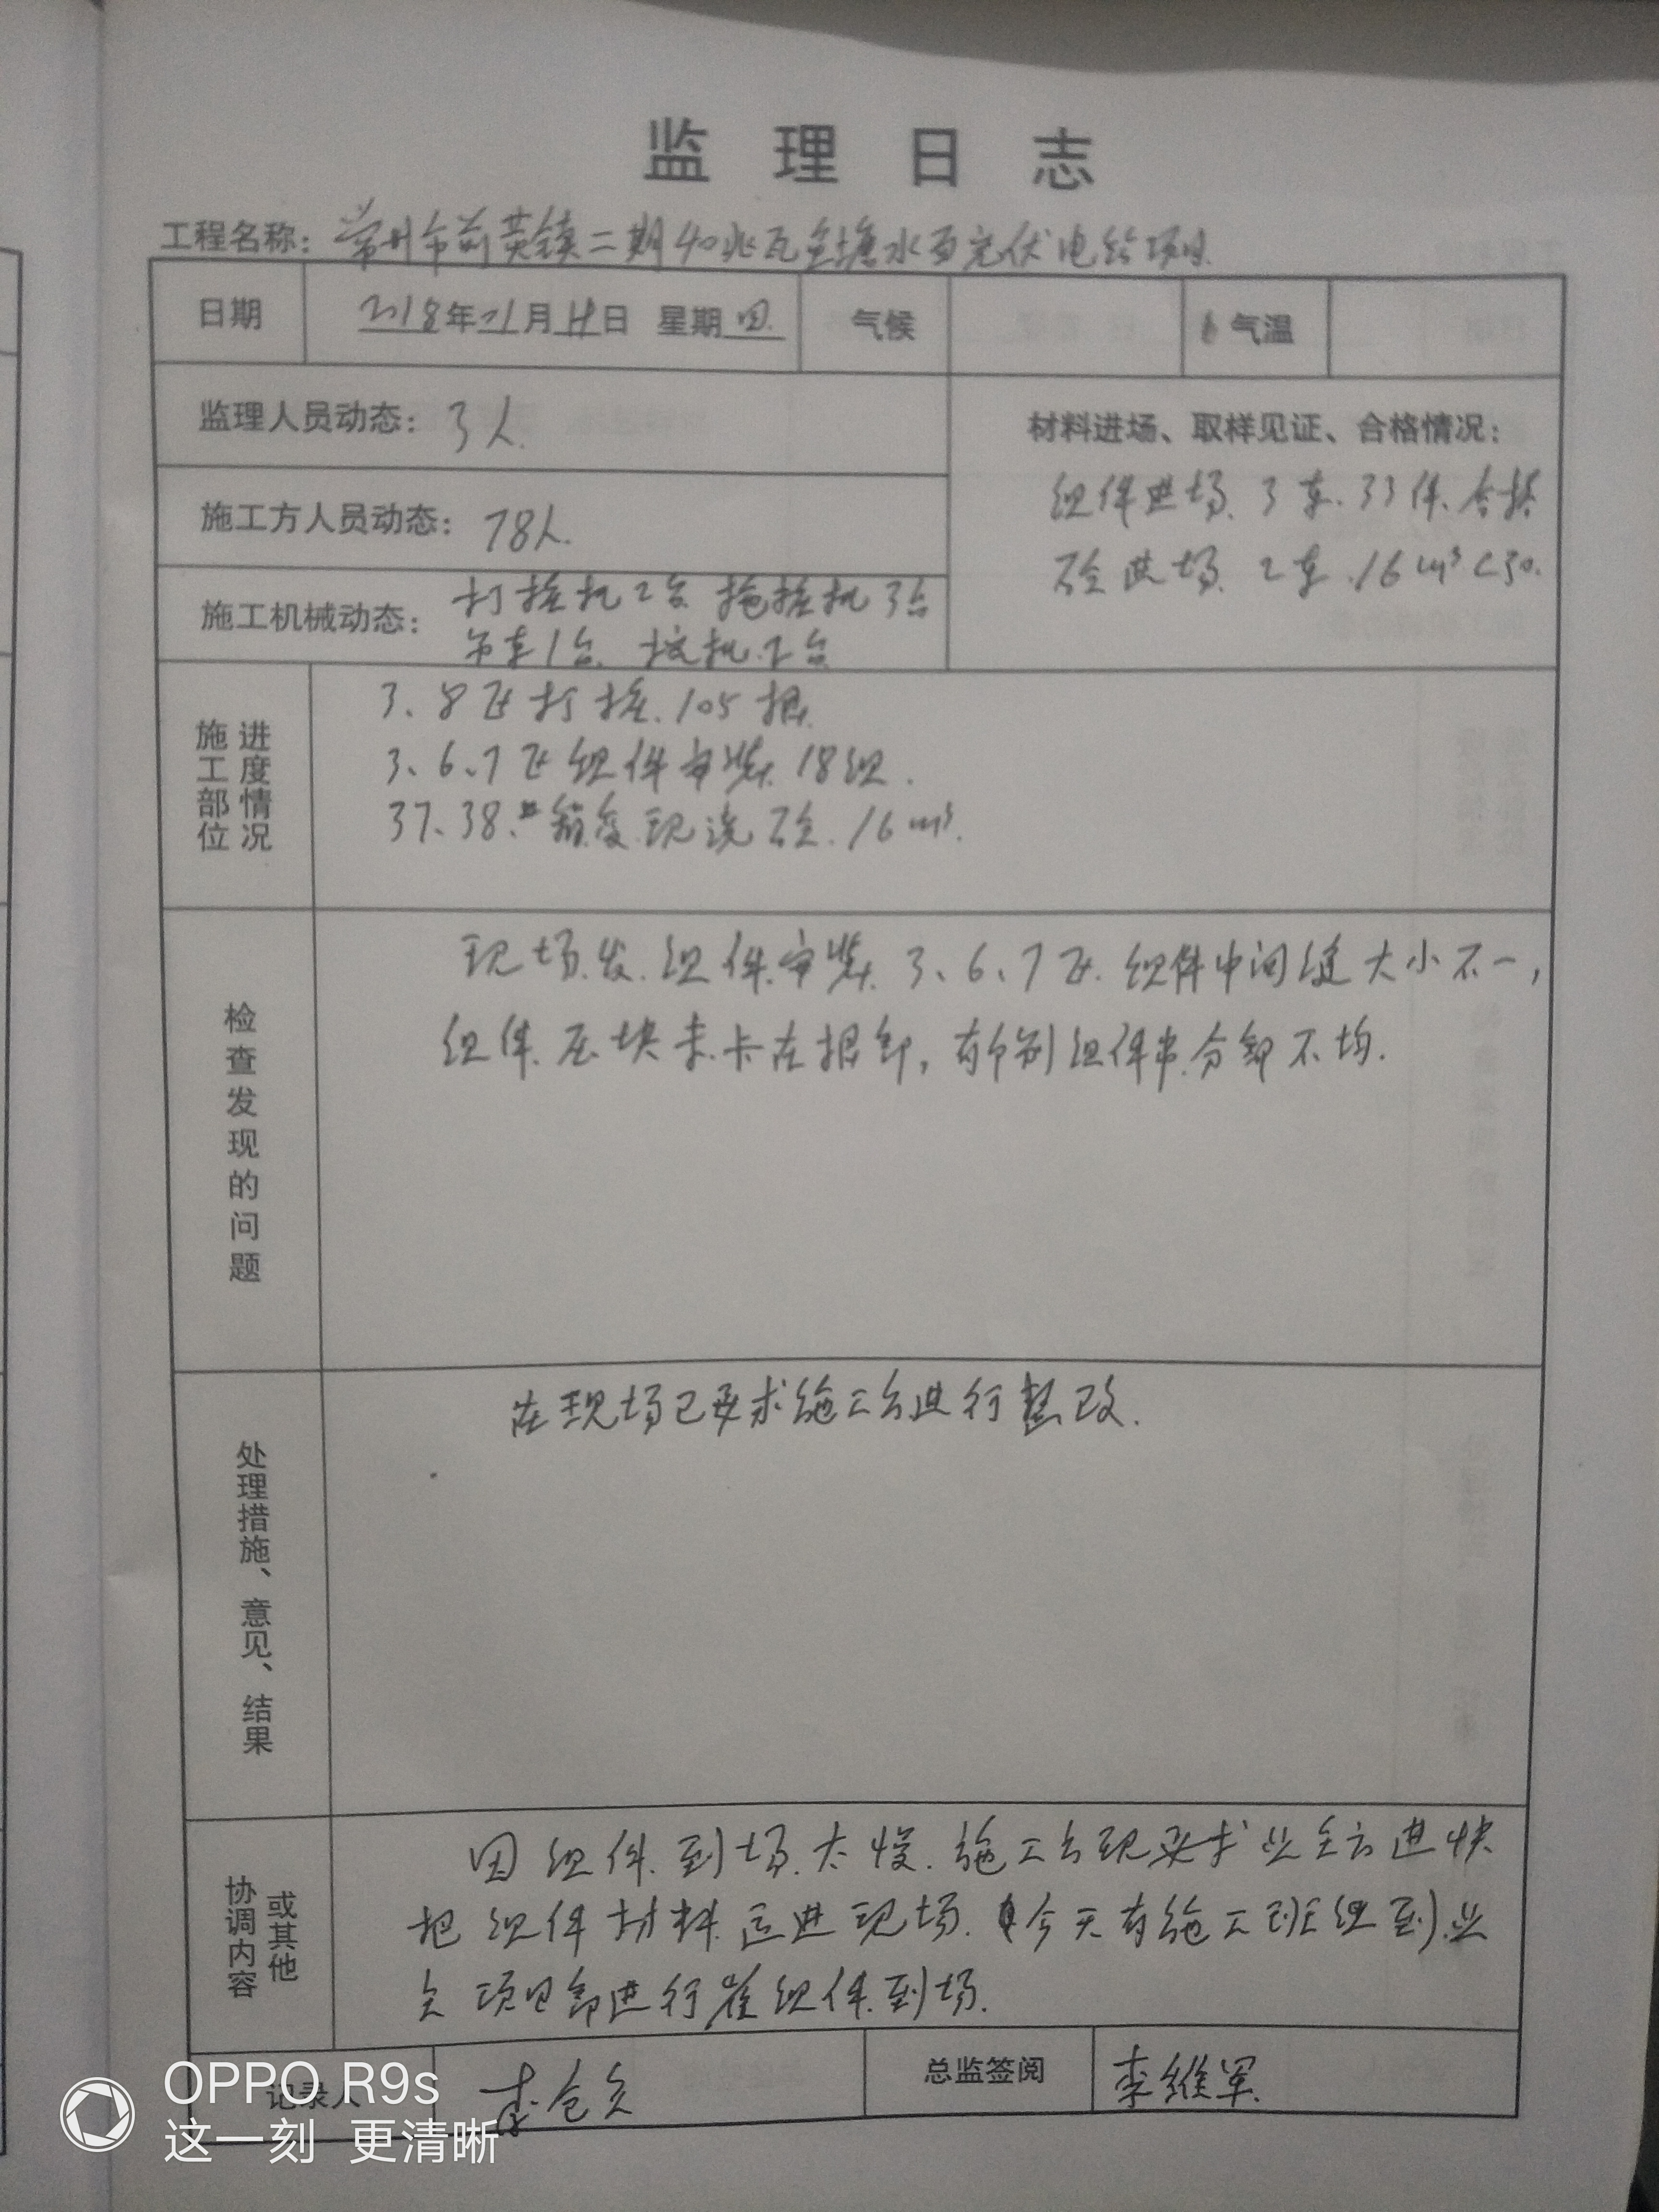 监理日志
工程名称：常州市前黄镇二期40兆瓦鱼塘水面光伏电站项目.
日期 2018年 月 日 星期四. 气候 气温
监理人员动态：3人. 材料进场、取样见证、合格情况：
组件进场.3车.33件.合格
施工方人员动态：78人.
砼进场.2车.16m³C30.
施工机械动态：打桩机2台 拖桩机3台
吊车1台. 挖机 台
施工部位 进度情况
3、8区打桩.105根.
3、6、7区组件安装.18组.
37、38、#箱变现浇砼.16m³.
检查发现的问题
现场.发.组件.安装.3、6、7区.组件中间缝大小不一，
组件.压块未.卡在根部，有个别组件串.分部不均.
处理措施、意见、结果
在现场已要求施工方进行整改.
协调内容 或其他
因组件.到场.太慢.施工方现要求业主方进快
把组件材料运进现场.今天有施工班组到业
主项目部进行崔组件.到场.
记录人 李 总监签阅 李维军.
OPPO R9s
这一刻 更清晰